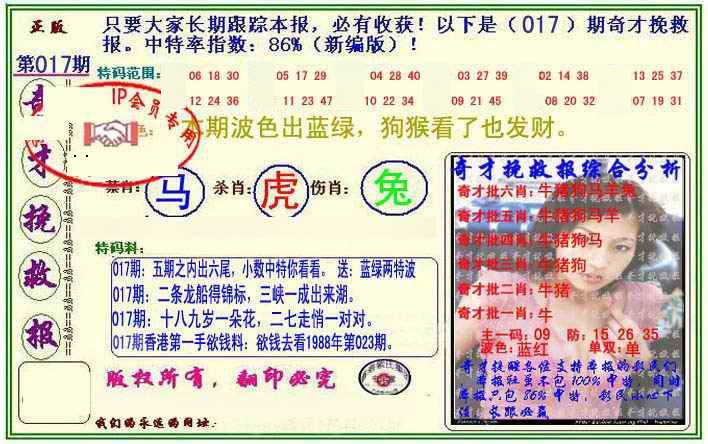 正版
只要大家长期跟踪本报，必有收获！以下是（017）期奇才挽救
报。中特率指数：86%（新编版）！
第017期
奇才挽救报
特码范围：
06 18 30 05 17 29 04 28 40 03 27 39 02 14 38 13 25 37
12 24 36 11 23 47 10 22 34 09 21 45 08 20 32 07 19 31
IP会员专用
色：本期波色出蓝绿，狗猴看了也发财。
禁肖：马 杀肖：虎 伤肖：兔
特码料：
017期：五期之内出六尾，小数中特你看看。 送：蓝绿两特波
017期：二条龙船得锦标，三峡一成出来湖。
017期：十八九岁一朵花，二七走悄一对对。
017期香港第一手欲钱料：欲钱去看1988年第023期。
版权所有，翻印必究
我们的永远的网址：
奇才挽救报综合分析
奇才批六肖：牛猪狗马羊兔
奇才批五肖：牛猪狗马羊
奇才批四肖：牛猪狗马
奇才批三肖：牛猪狗
奇才批二肖：牛猪
奇才批一肖：牛
主一码：09 防：15 26 35
波色：蓝红 单双：单
奇才救报各位支持本报的彩民们
本报往虽不包100%中特，同时
本报只包86%中特，彩民小心下
注，长跟必赢